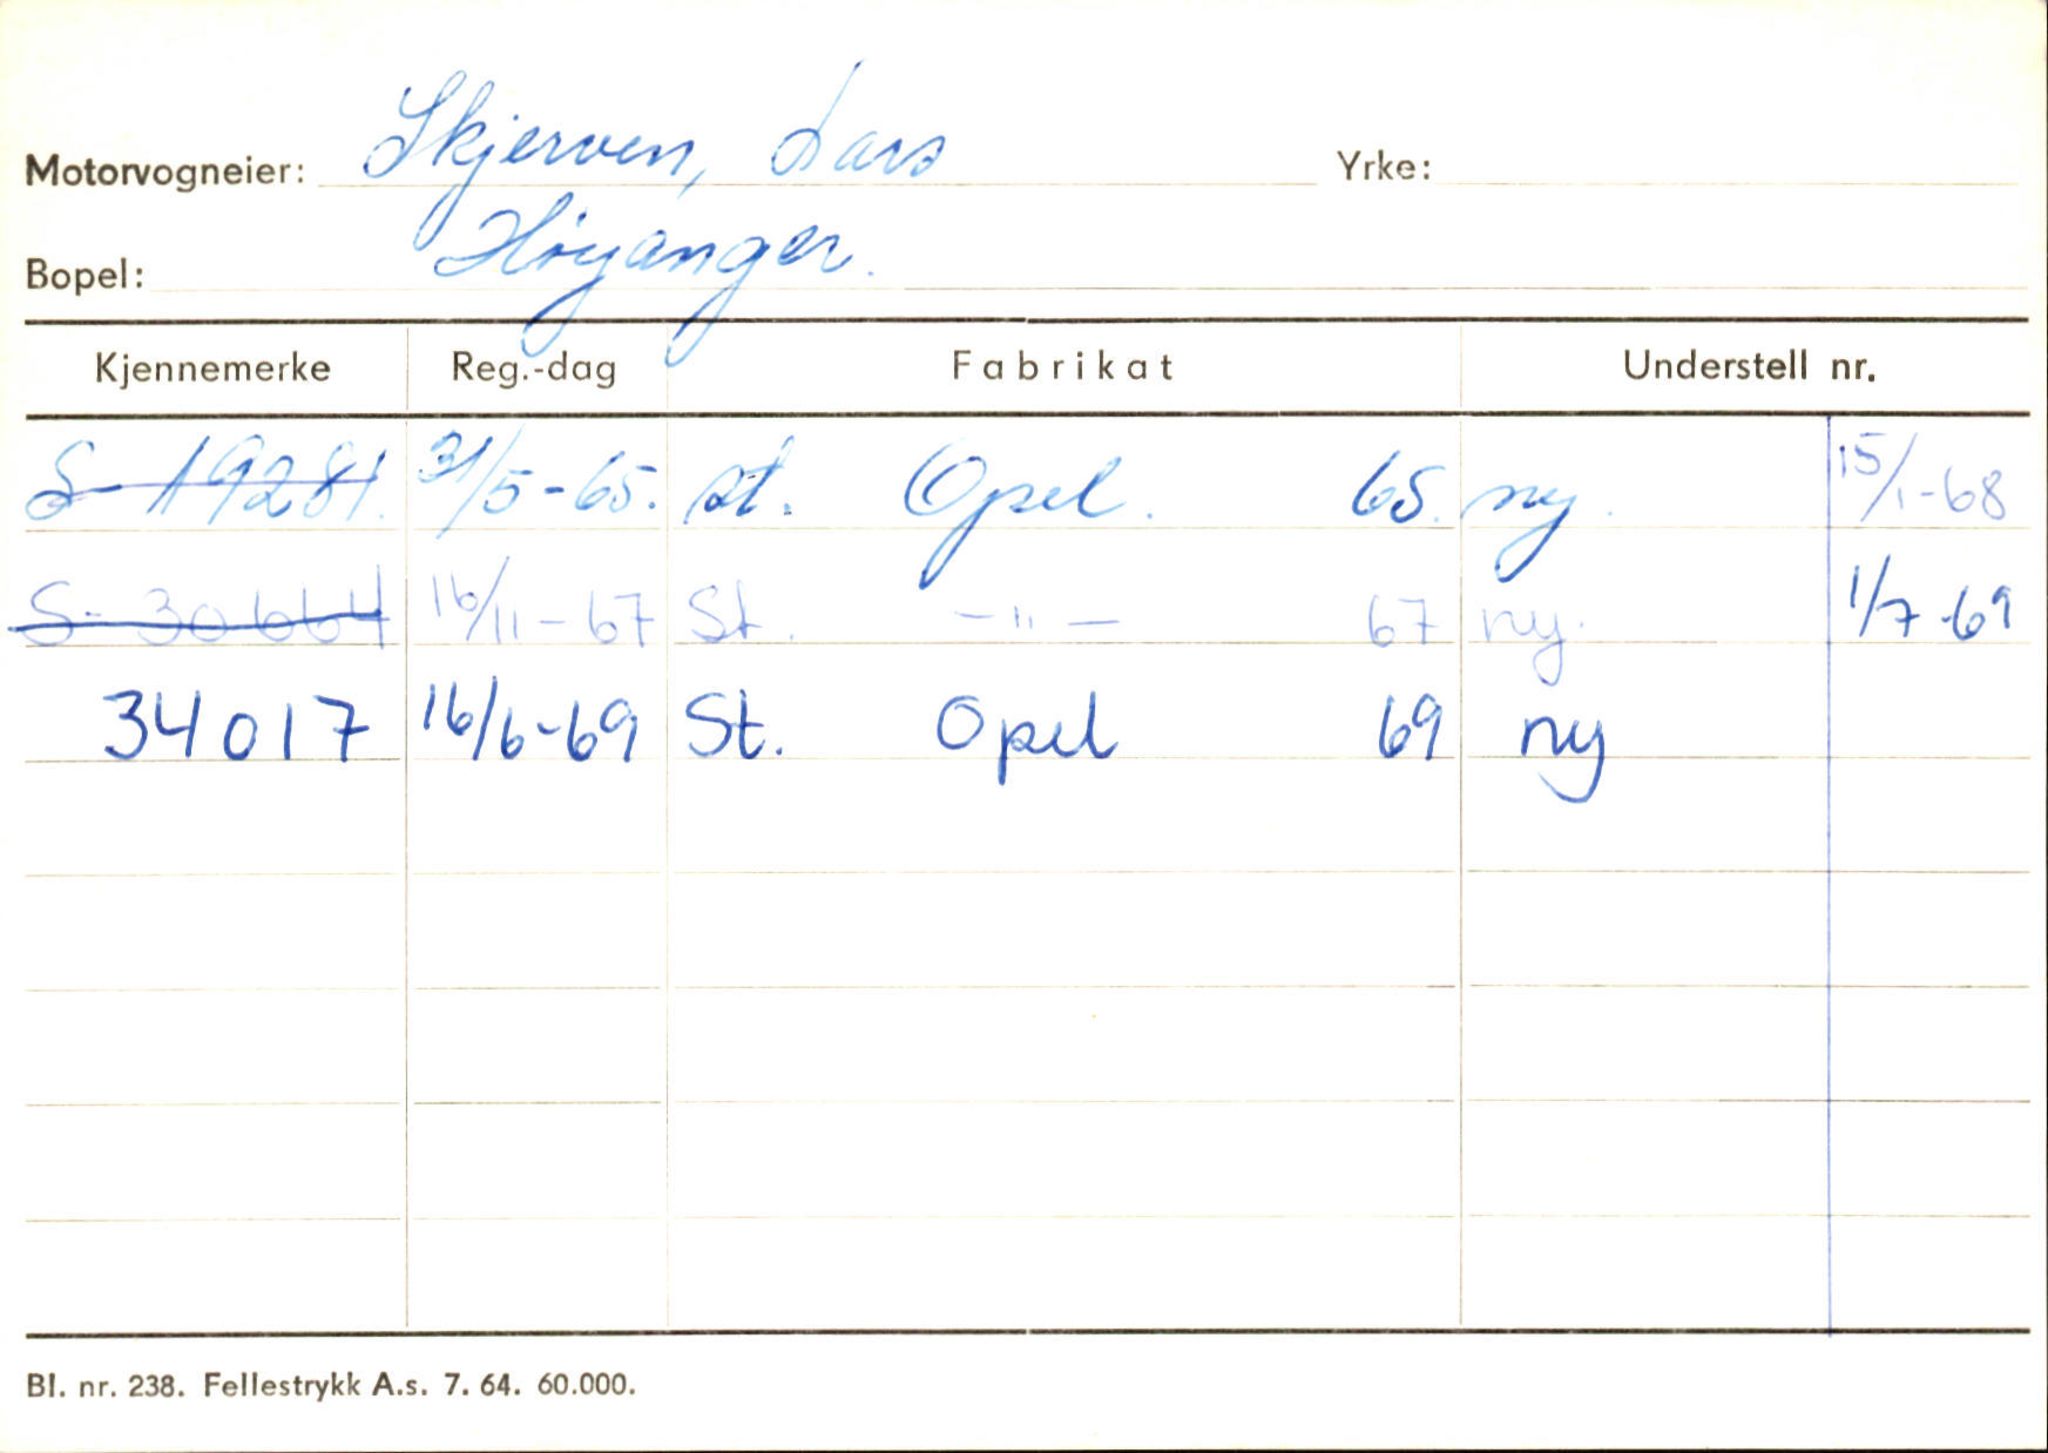 Motorvogneier: Skjerven, Lars Yrke:
Bopel: Høyanger.
Kjennemerke Reg.-dag Fabrikat Understell nr.
S-19281. 31/5-65. st. Opel. 65. ny. 15/1-68
S-30664 16/11-67 St. -"- 67 ny. 1/7-69
34017 16/6-69 St. Opel 69 ny
Bl. nr. 238. Fellestrykk A.s. 7. 64. 60.000.